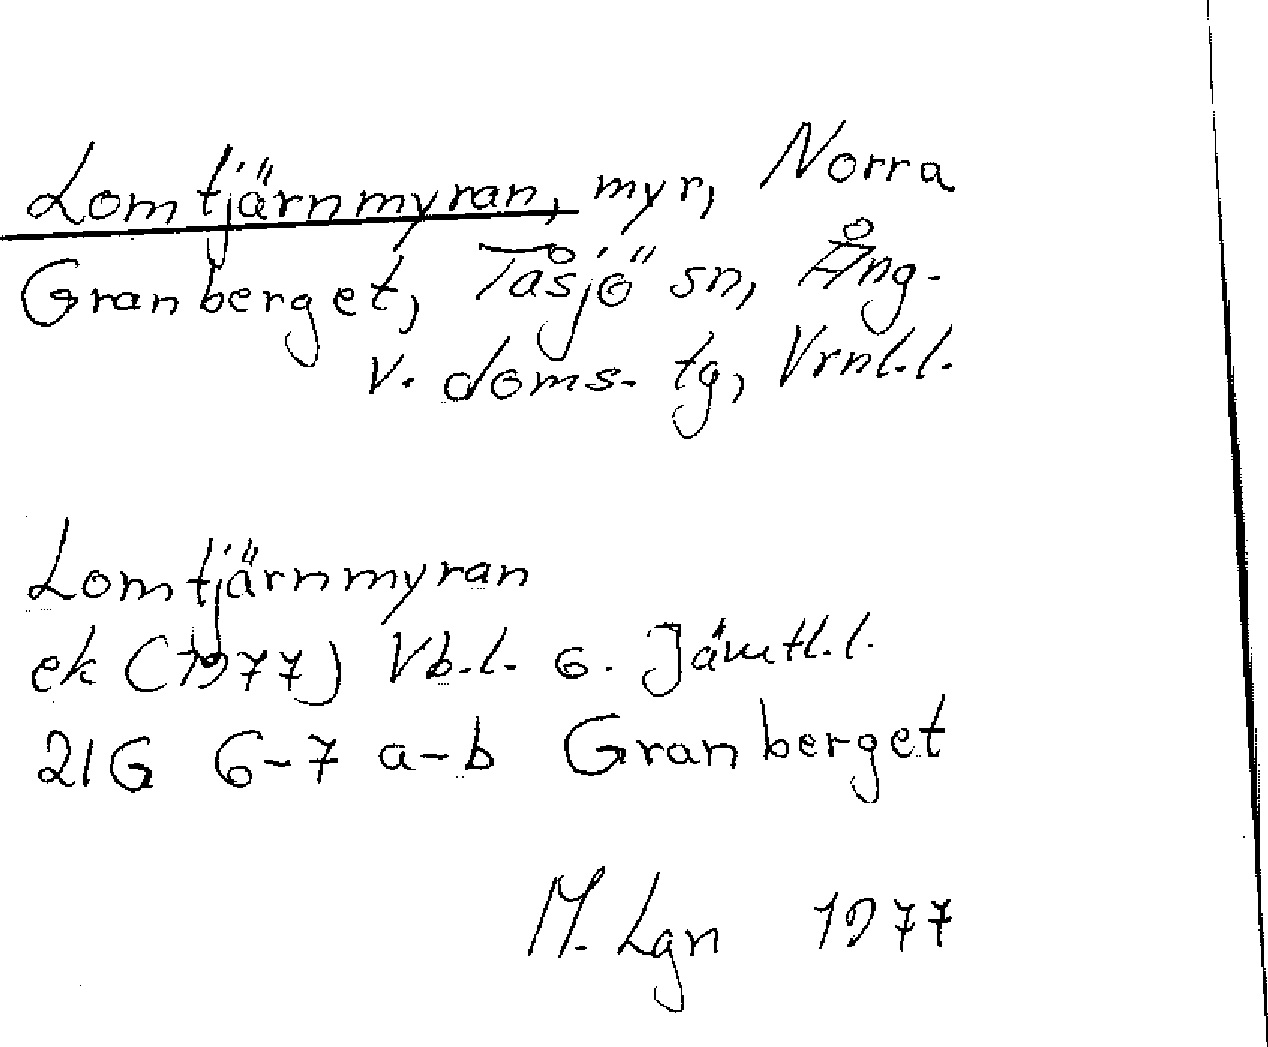 Lomtjärnmyran, myr, Norra
Granberget, Tåsjö sn, Ång-
V. doms. tg, Vrnl.l.
Lomtjärnmyran
ek (1977) Vb.l. o. Jämtl.l.
21G 6-7 a-b Granberget
M. Lgn 1977